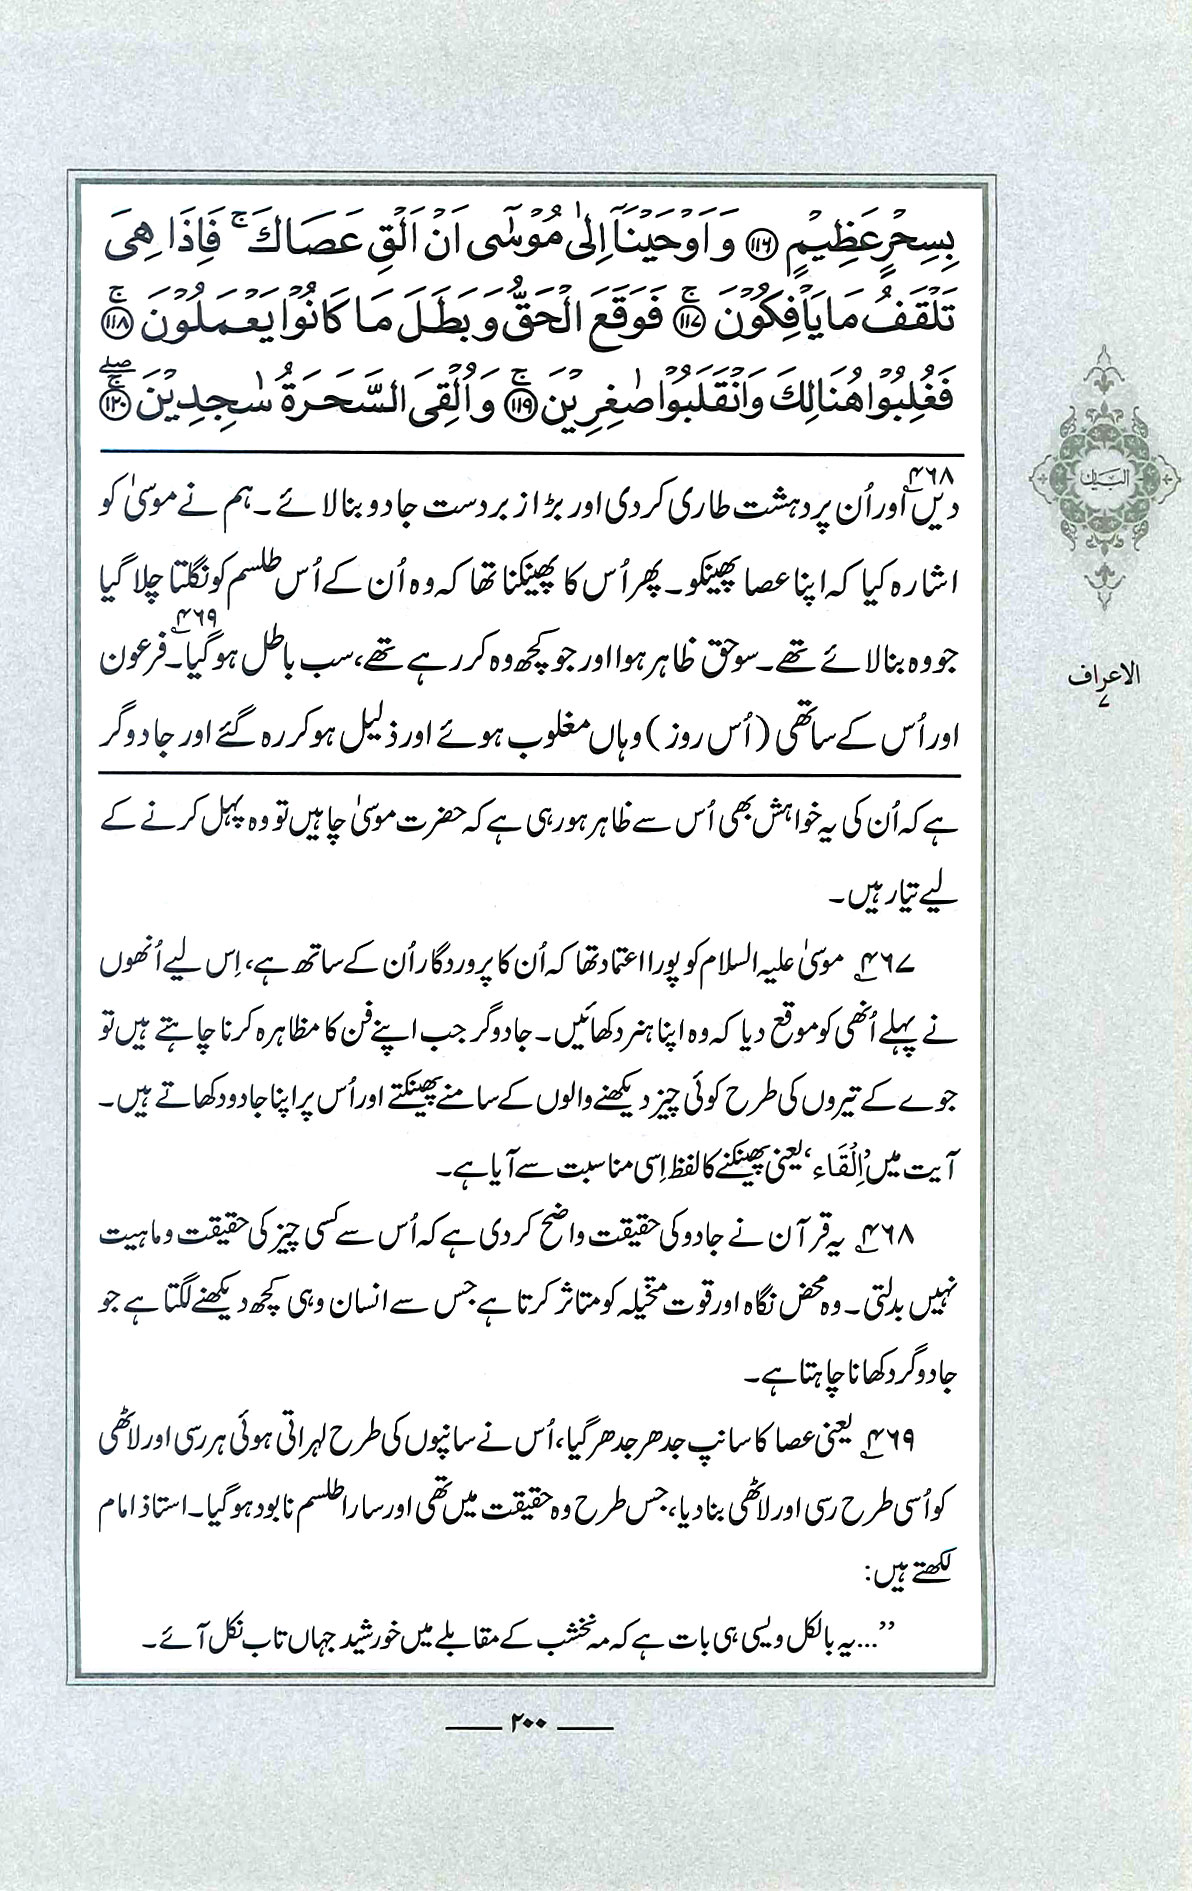 بِسِحْرٍ عَظِيْمٍ ﴿۱۱۶﴾ وَاَوْحَيْنَآ اِلٰى مُوْسٰٓى اَنْ اَلْقِ عَصَاكَ ۚ فَاِذَا هِىَ
تَلْقَفُ مَا يَاْفِكُوْنَ ﴿۱۱۷﴾ ۚ فَوَقَعَ الْحَقُّ وَبَطَلَ مَا كَانُوْا يَعْمَلُوْنَ ﴿۱۱۸﴾ ۚ
فَغُلِبُوْا هُنَالِكَ وَانْقَلَبُوْا صٰغِرِيْنَ ﴿۱۱۹﴾ ۚ وَاُلْقِىَ السَّحَرَةُ سٰجِدِيْنَ ﴿۱۲۰﴾ ۚ ۖ
دیں اور اُن پر دہشت طاری کر دی اور بڑا زبردست جادو بنا لائے۔۴۶۸ ہم نے موسیٰ کو
اشارہ کیا کہ اپنا عصا پھینکو۔ پھر اُس کا پھینکنا تھا کہ وہ اُن کے اُس طلسم کو نگلتا چلا گیا
جو وہ بنا لائے تھے۔ سو حق ظاہر ہوا اور جو کچھ وہ کر رہے تھے، سب باطل ہو گیا۔۴۶۹ فرعون
اور اُس کے ساتھی (اُس روز) وہاں مغلوب ہوئے اور ذلیل ہو کر رہ گئے اور جادوگر
ہے کہ اُن کی یہ خواہش بھی اُس سے ظاہر ہو رہی ہے کہ حضرت موسیٰ چاہیں تو وہ پہل کرنے کے
لیے تیار ہیں۔
۴۶۷ موسیٰ علیہ السلام کو پورا اعتماد تھا کہ اُن کا پروردگار اُن کے ساتھ ہے، اِس لیے اُنھوں
نے پہلے اُنھی کو موقع دیا کہ وہ اپنا ہنر دکھائیں۔ جادوگر جب اپنے فن کا مظاہرہ کرنا چاہتے ہیں تو
جوے کے تیروں کی طرح کوئی چیز دیکھنے والوں کے سامنے پھینکتے اور اُس پر اپنا جادو دکھاتے ہیں۔
آیت میں ’اِلْقَاء‘ یعنی پھینکنے کا لفظ اِسی مناسبت سے آیا ہے۔
۴۶۸ یہ قرآن نے جادو کی حقیقت واضح کر دی ہے کہ اُس سے کسی چیز کی حقیقت و ماہیت
نہیں بدلتی۔ وہ محض نگاہ اور قوت متخیلہ کو متاثر کرتا ہے جس سے انسان وہی کچھ دیکھنے لگتا ہے جو
جادوگر دکھانا چاہتا ہے۔
۴۶۹ یعنی عصا کا سانپ جدھر جدھر گیا، اُس نے سانپوں کی طرح لہراتی ہوئی ہر رسی اور لاٹھی
کو اُسی طرح رسی اور لاٹھی بنا دیا، جس طرح وہ حقیقت میں تھی اور سارا طلسم نابود ہو گیا۔ استاذ امام
لکھتے ہیں:
”...یہ بالکل ویسی ہی بات ہے کہ مہ نخشب کے مقابلے میں خورشید جہاں تاب نکل آئے۔
۲۰۰
البیان
الاعراف
۷